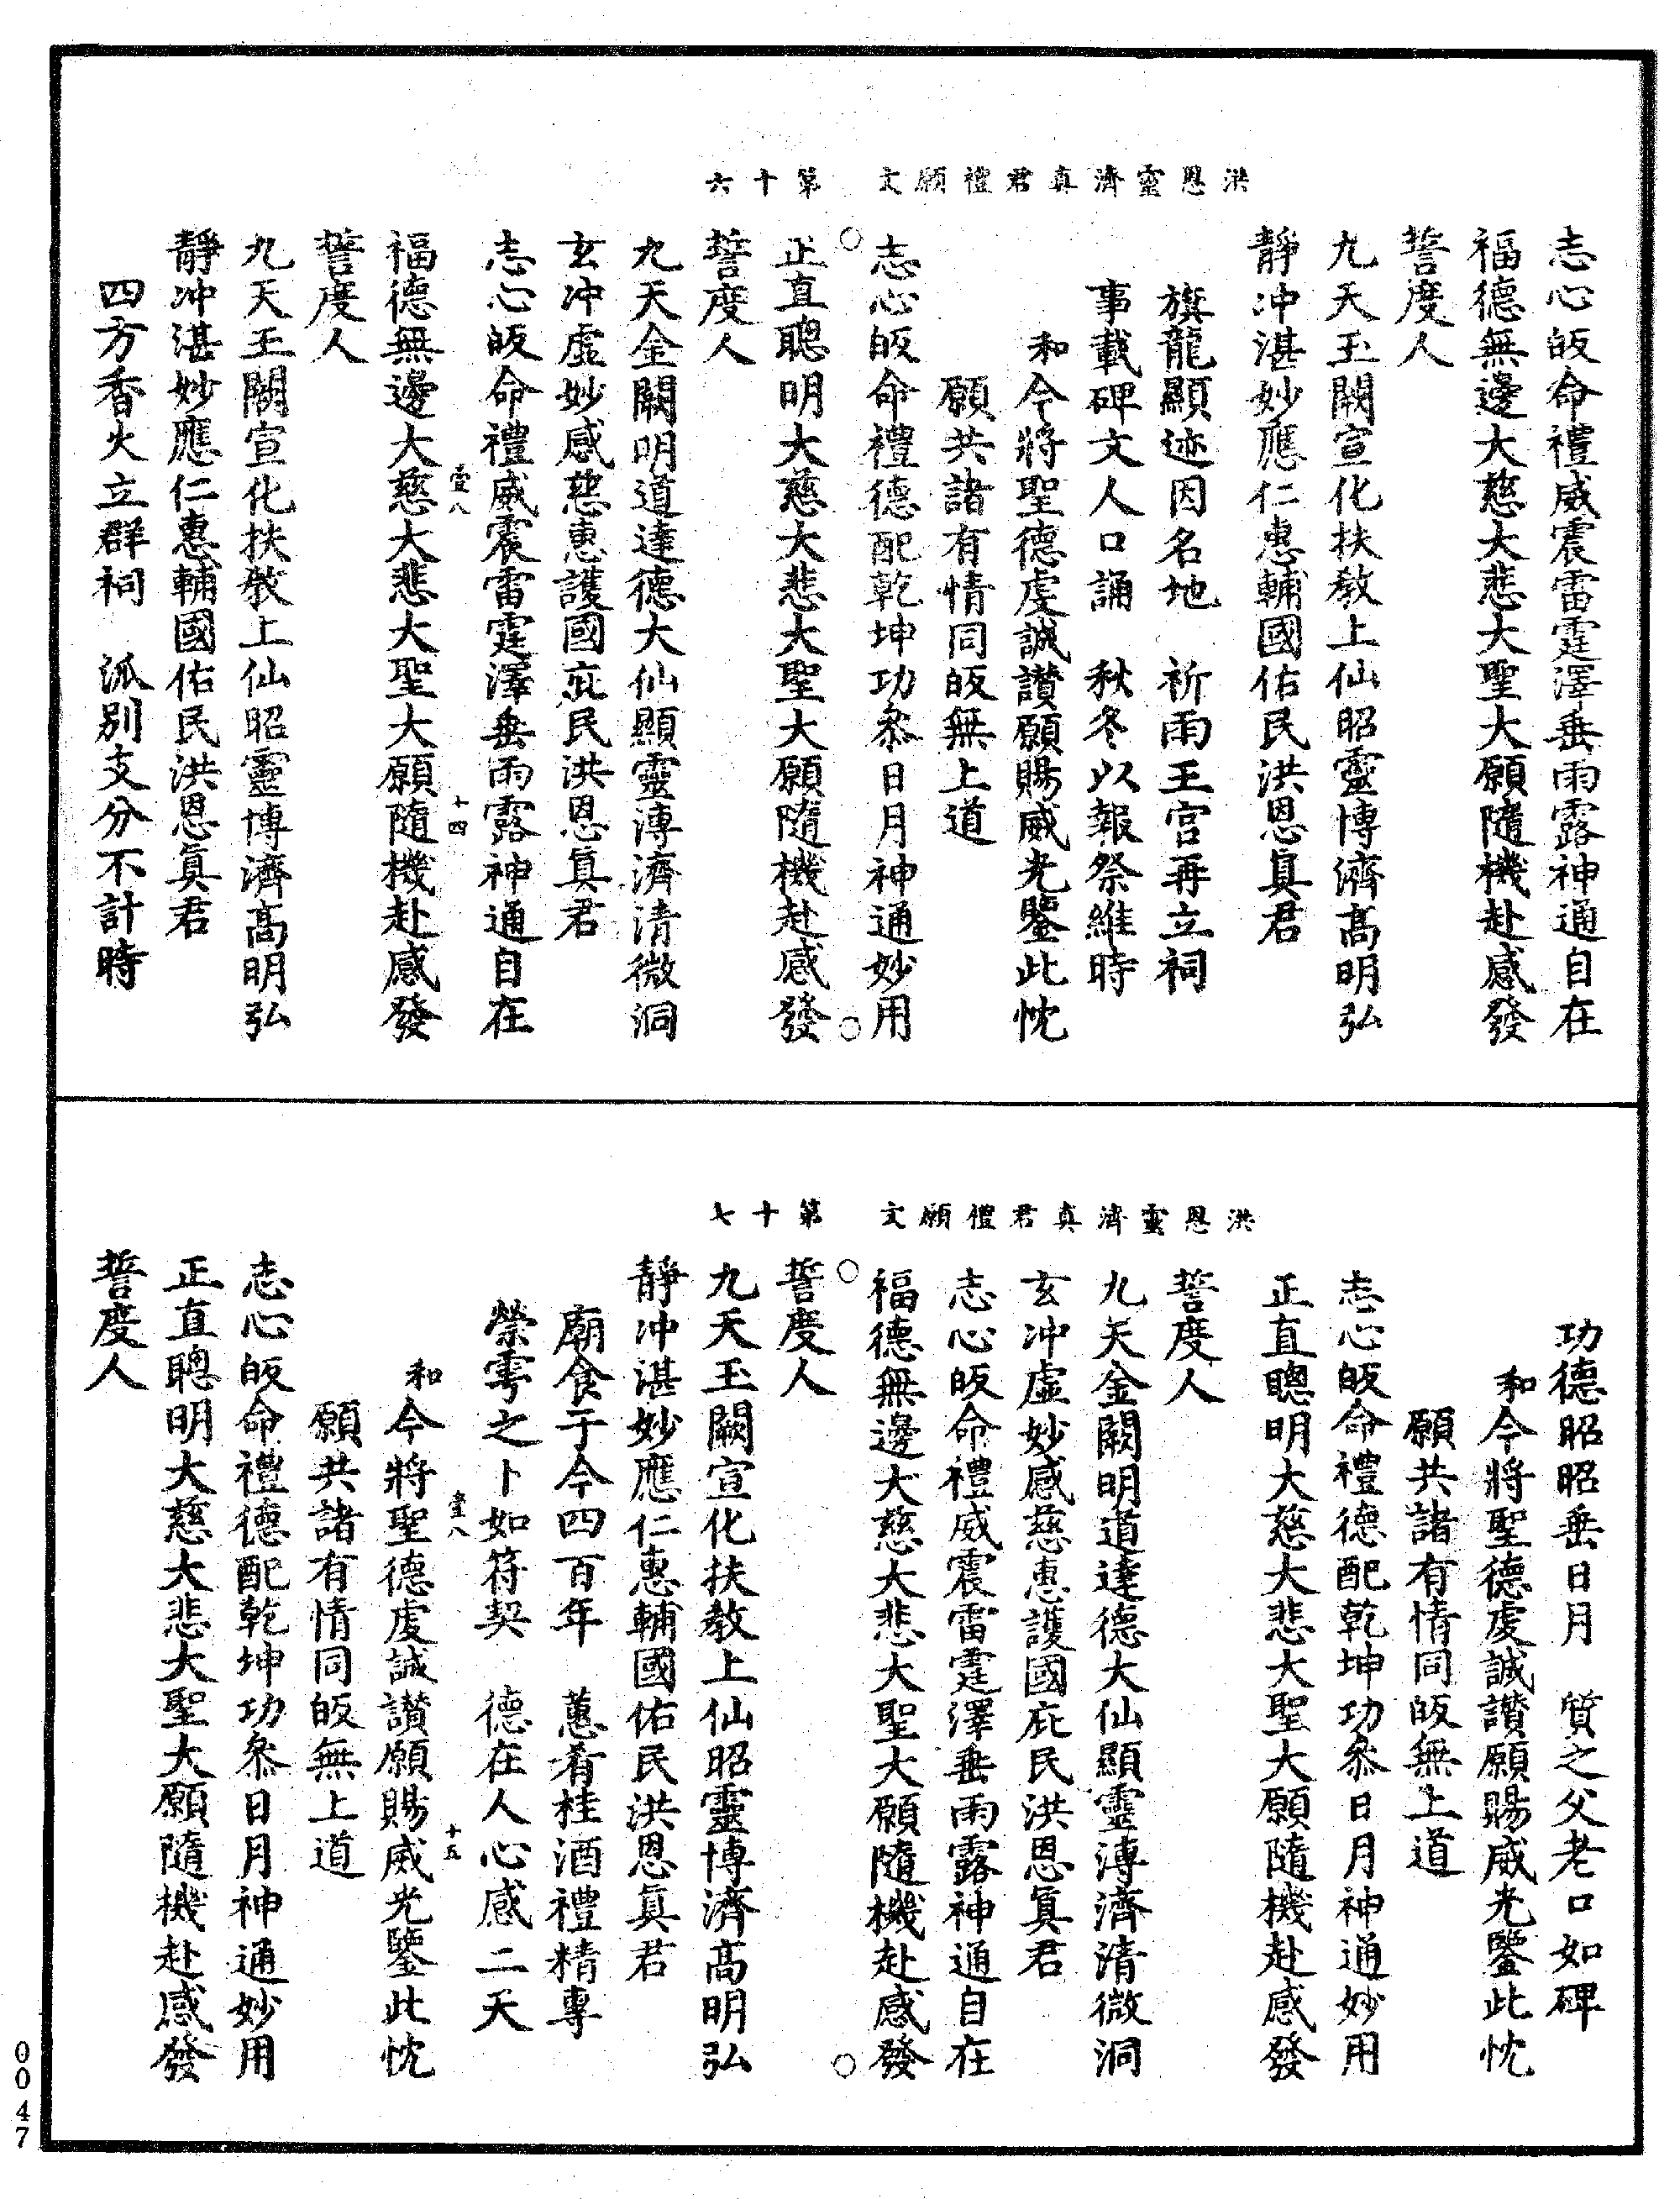 洪恩靈濟真君禮願文　第十六
志心皈命禮威震雷霆澤垂雨露神通自在
福德無邊大慈大悲大聖大願隨機赴感發
誓度人
九天玉闕宣化扶教上仙昭靈博濟高明弘
靜冲湛妙應仁惠輔國佑民洪恩真君
旗龍顯迹因名地　祈雨王宮再立祠
事載碑文人口誦　秋冬以報祭維時
和今將聖德虔誠讃願賜威光鑒此忱
願共諸有情同皈無上道
志心皈命禮德配乾坤功叅日月神通妙用
正直聰明大慈大悲大聖大願隨機赴感發
誓度人
九天金闕明道達德大仙顯靈溥濟清微洞
玄冲虛妙感慈惠護國庇民洪恩真君
志心皈命禮威震雷霆澤垂雨露神通自在
壹八　十四
福德無邊大慈大悲大聖大願隨機赴感發
誓度人
九天玉闕宣化扶教上仙昭靈博濟高明弘
靜冲湛妙應仁惠輔國佑民洪恩真君
四方香火立群祠　派別支分不計時
洪恩靈濟真君禮願文　第十七
功德昭昭垂日月　質之父老口如碑
和今將聖德虔誠讃願賜威光鑒此忱
願共諸有情同皈無上道
志心皈命禮德配乾坤功叅日月神通妙用
正直聰明大慈大悲大聖大願隨機赴感發
誓度人
九天金闕明道達德大仙顯靈溥濟清微洞
玄冲虛妙感慈惠護國庇民洪恩真君
志心皈命禮威震雷霆澤垂雨露神通自在
福德無邊大慈大悲大聖大願隨機赴感發
誓度人
九天玉闕宣化扶教上仙昭靈博濟高明弘
靜冲湛妙應仁惠輔國佑民洪恩真君
廟食于今四百年　蕙肴桂酒禮精專
禜雩之卜如符契　德在人心感二天
壹八　十五
和今將聖德虔誠讃願賜威光鑒此忱
願共諸有情同皈無上道
志心皈命禮德配乾坤功叅日月神通妙用
正直聰明大慈大悲大聖大願隨機赴感發
誓度人
0047